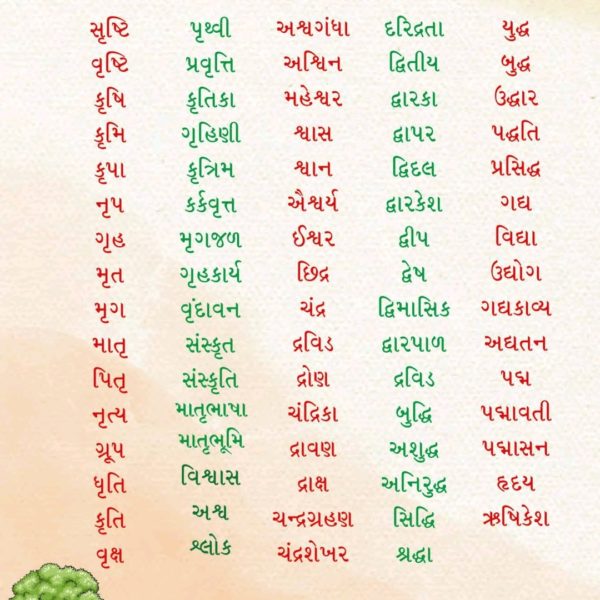 સૃષ્ટિ પૃથ્વી અશ્વગંધા દરિદ્રતા યુદ્ધ
વૃષ્ટિ પ્રવૃત્તિ અશ્વિન દ્વિતીય બુદ્ધ
કૃષિ કૃતિકા મહેશ્વર દ્વારકા ઉદ્ધાર
કૃમિ ગૃહિણી શ્વાસ દ્વાપર પદ્ધતિ
કૃપા કૃત્રિમ શ્વાન દ્વિદલ પ્રસિદ્ધ
નૃપ કર્કવૃત્ત ઐશ્વર્ય દ્વારકેશ ગદ્ય
ગૃહ મૃગજળ ઈશ્વર દ્વીપ વિદ્યા
મૃત ગૃહકાર્ય છિદ્ર દ્વેષ ઉદ્યોગ
મૃગ વૃંદાવન ચંદ્ર દ્વિમાસિક ગદ્યકાવ્ય
માતૃ સંસ્કૃત દ્રવિડ દ્વારપાળ અદ્યતન
પિતૃ સંસ્કૃતિ દ્રોણ દ્રવિડ પદ્મ
નૃત્ય માતૃભાષા ચંદ્રિકા બુદ્ધિ પદ્માવતી
ગ્રૂપ માતૃભૂમિ દ્રાવણ અશુદ્ધ પદ્માસન
ધૃતિ વિશ્વાસ દ્રાક્ષ અનિરુદ્ધ હૃદય
કૃતિ અશ્વ ચન્દ્રગ્રહણ સિદ્ધિ ઋષિકેશ
વૃક્ષ શ્લોક ચંદ્રશેખર શ્રદ્ધા